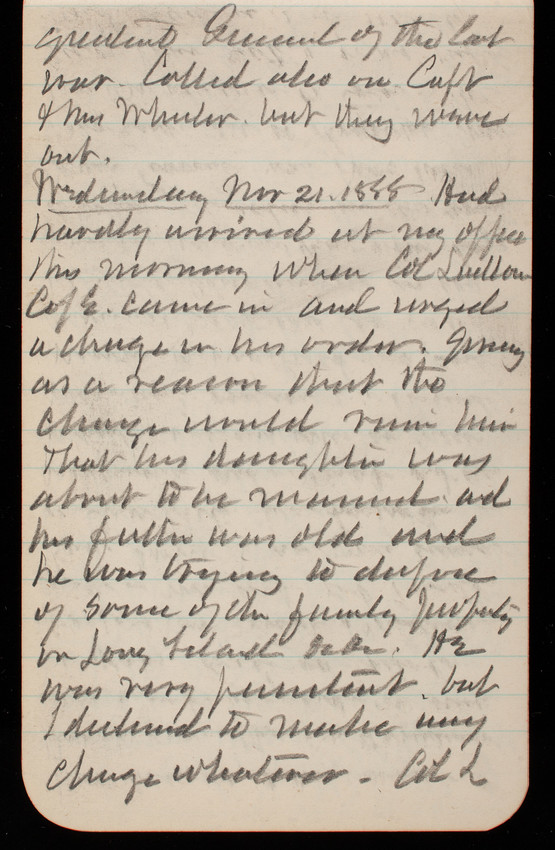 greatest General of the last
war. Called also on Capt
& Mrs Wheeler. but they were
out.
Wednesday Nov 21. 1888 Had
hardly arrived at my office
this morning when Col Ludlow
C of E. came in and urged
a change in his order. giving
as a reason that the
change would ruin him
That his daughter was
about to be married and
his father was old and
he was trying to dispose
of some of the family property
on Long Island &c &c. He
was very persistent. but
I declined to make any
change whatever - Col L